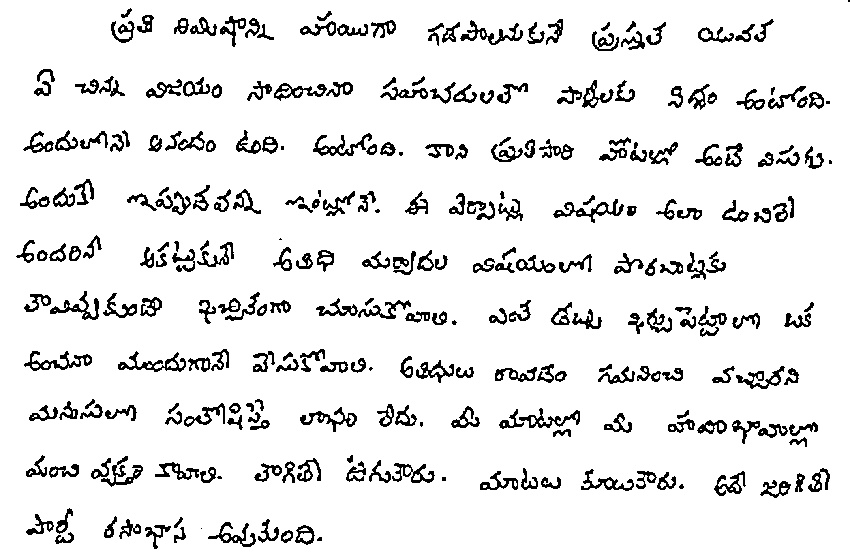 ప్రతి నిమిషాన్ని హాయిగా గడపాలనుకునే ప్రస్తుత యువత
ఏ చిన్న విజయం సాధించినా సహచరులతో పార్టీలకు సిద్ధం అంటోంది.
అందులోనే ఆనందం ఉంది. అంటోంది. కాని ప్రతిసారి హోటల్లో అంటే విసుగు.
అందుకే ఇప్పుడివన్నీ ఇంట్లోనే. ఈ ఏర్పాట్ల విషయం ఎలా ఉంచితే
అందరినీ ఆకట్టుకునే అతిథి మర్యాదల విషయంలో పొరబాట్లకు
తావివ్వకుండా ఖచ్చితంగా చూసుకోవాలి. ఎంత డబ్బు ఖర్చుపెట్టాలో ఒక
అంచనా ముందుగానే వేసుకోవాలి. అతిథులు రావడం గమనించి వచ్చారని
మనుసులో సంతోషిస్తే లాభం లేదు. మీ మాటల్లో మీ హావభావాల్లో
మంచి వ్యక్తం కావాలి. తాగితే ఊగుతారు. మాటలు తూలుతారు. అదే జరిగితే
పార్టీ రసాభాస అవుతుంది.